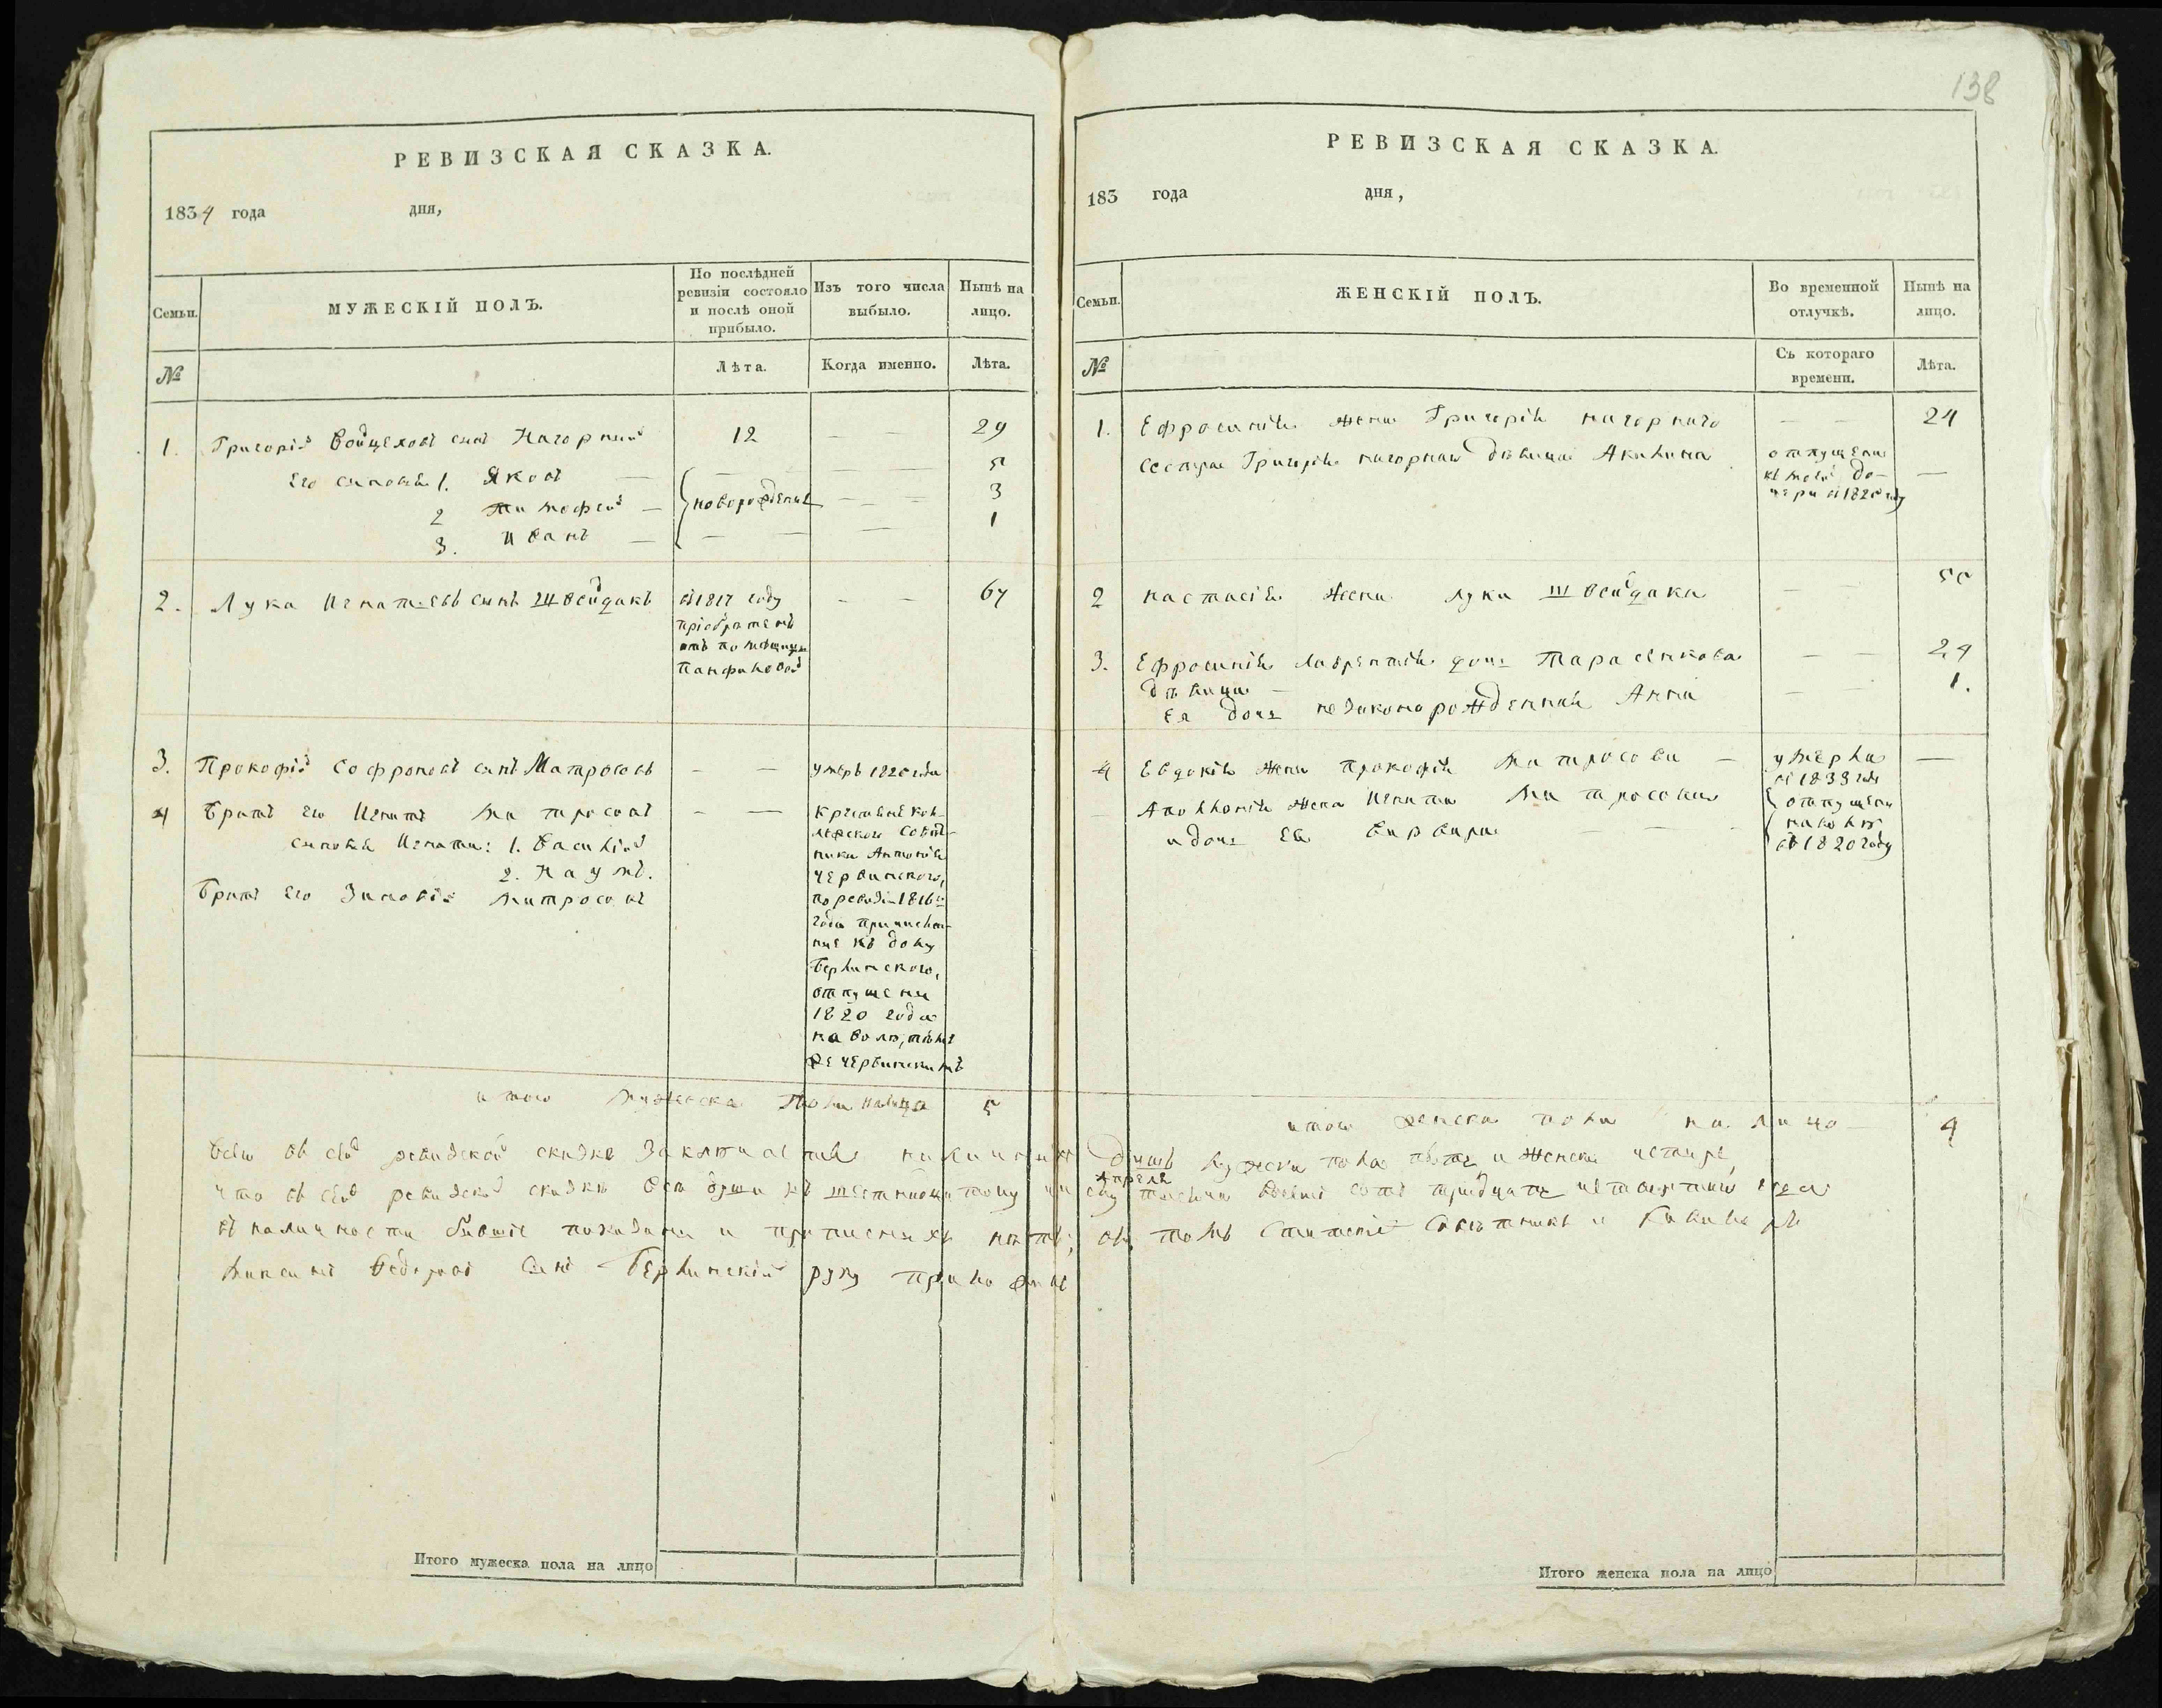 138
РЕВИЗСКАЯ СКАЗКА.
1834 года дня,
Семьи.
МУЖЕСКІЙ ПОЛЪ.
По послѣдней
ревизіи состояло
и послѣ оной
прибыло.
Изъ того числа
выбыло.
Нынѣ на
лицо.
№
Лѣта.
Когда именно.
Лѣта.
1. Григорій Войцеховъ сынъ Нагорный 12 — — 29
Его сыновья 1. Яковъ — 5
2 Тимофей — новорожденные — — 3
3. Иванъ — — — — 1
2. Лука Игнатьевъ сынъ Швейдакъ — — 67
въ 1817 году
пріобретенъ
отъ помѣщицы
Панфиловой
3. Прокофій Софроновъ сынъ Матросовъ — — умеръ 1826 года
4 Братъ его Игнатъ Матросовъ — —
сыновья Игната: 1. Василій
2. Наумъ.
Братъ его Зиновій Матросовъ
крестьяне кол-
лежскаго совѣт-
ника Антонія
Червинского,
по ревизіи 1816го
года причислен-
ные къ дому
Берлинского,
отпущены
1820 года
на волю, тѣмъ
же Червинскимъ
итого мужеска пола налицо 5
РЕВИЗСКАЯ СКАЗКА.
183 года дня,
Семьи.
ЖЕНСКІЙ ПОЛЪ.
Во временной
отлучкѣ.
Нынѣ на
лицо.
№
Съ котораго
времени.
Лѣта.
1. Ефросинія жена Григорія Нагорнаго — — 24
сестра Григорія Нагорная дѣвица Акилина —
отпущена
къ моей до-
чери въ 1826 году
2 Настасія жена Луки Швейдака — — 55
3. Ефросинія Лаврентія дочь Тарасенкова — — 24
дѣвица —
Ея дочь незаконорожденная Анна — — 1.
4 Евдокія жена Прокофія Матросова — умерла —
въ 1833 году
— Аполлонія жена Игната Матросова
и дочь Ея Варвара — — —
отпущены
на волю
въ 1820 году
итого женска пола на лицо — 4
Всего въ сей ревизской сказке заключается наличныхъ душъ мужеска пола пять и женска четыре,
что въ сей ревизской сказкѣ всѣ души къ шестнадцатому числу апреля тысяча восемь сотъ тридцать четвертаго года
въ наличности бывшіе показаны и прописныхъ нѣтъ; въ томъ Статскій Совѣтникъ и Кавалеръ
Максимъ Федоровъ сынъ Берлинскій руку приложилъ
Итого мужеска пола на лицо
Итого женска пола на лицо